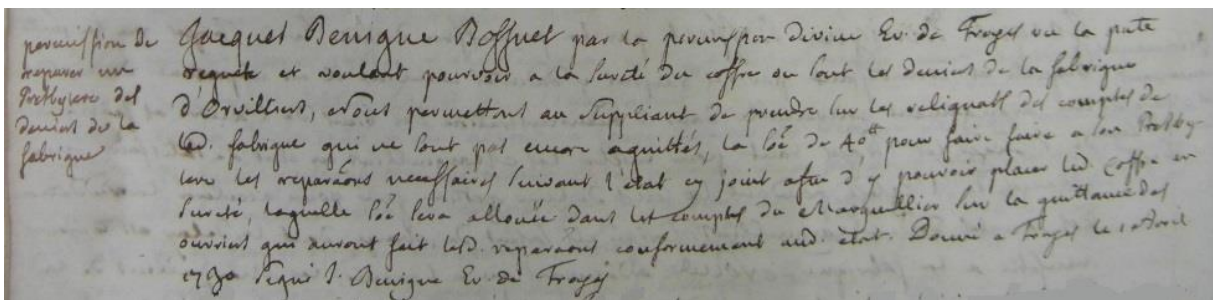 permission de
reparer un
Presbytere des
deniers de la
fabrique
Jacques Benigne Bossuet par la permission divine Ev. de Troyes vu la pnte
requete et voulant pourvoir a la sureté du coffre ou sont les deniers de la fabrique
d'Orvilliers, Nous permettons au suppliant de prendre sur les reliquats des comptes de
lad. fabrique qui ne sont pas encore aquittés, la soê de 40tt pour faire faire a son Presby-
tere les reparaôns necessaires suivant l'etat cy joint afin d'y pouvoir placer led. coffre en
sureté, laquelle soê sera allouée dans les comptes du Marguillier sur la quittance des
ouvriers qui auront fait lesd. reparaôns conformement aud. etat. Donné a Troyes le Avril
1730 signé J. Benigne Ev. de Troyes